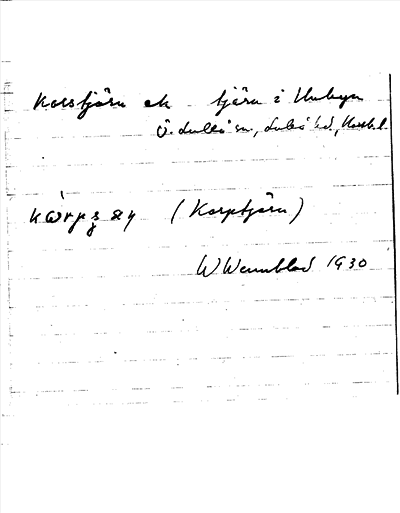 Korstjärn ek tjärn i Unbyn
Ö. Luleå sn, Luleå hd, Norrb. l.
(Korptjärn)
W Wennblad 1930